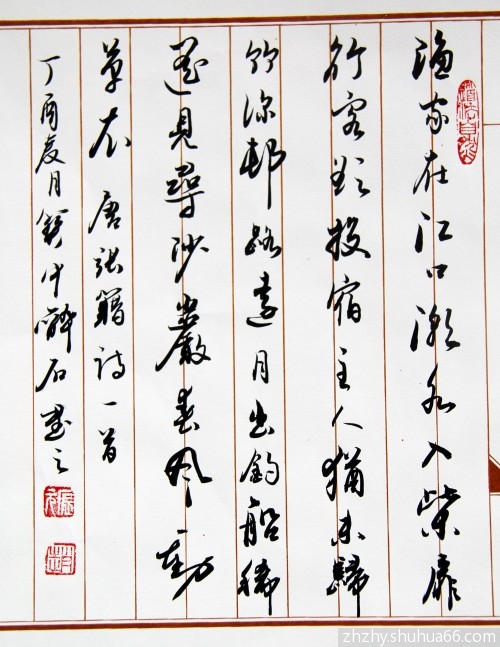 渔家在江口潮水入柴扉
行客欲投宿主人犹未归
竹深邨路远月出钓船稀
遥见寻沙岸春风动
草衣 唐张籍诗一首
丁酉夏月 醉石书之
zhzhy.shuhua66.com